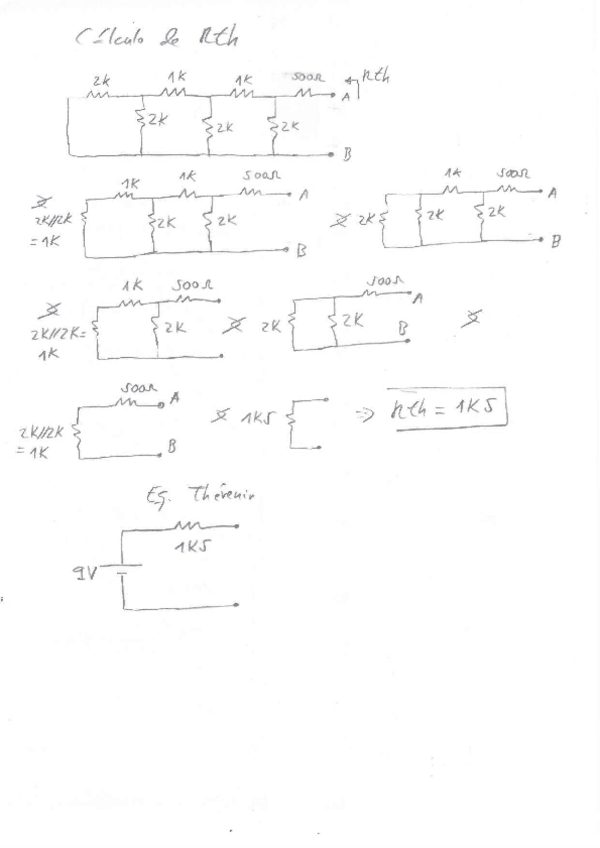 Cálculo de Rth
2K 1K 1K 500Ω Rth
A
2K 2K 2K
B
1K 1K 500Ω A 1K 500Ω A
2K//2K 2K 2K 2K 2K 2K
= 1K B B
1K 500Ω 500Ω A
2K//2K= 2K 2K 2K B
1K
500Ω A
2K//2K 1K5 => Rth = 1K5
= 1K B
Eq. Thévenin
1K5
9V